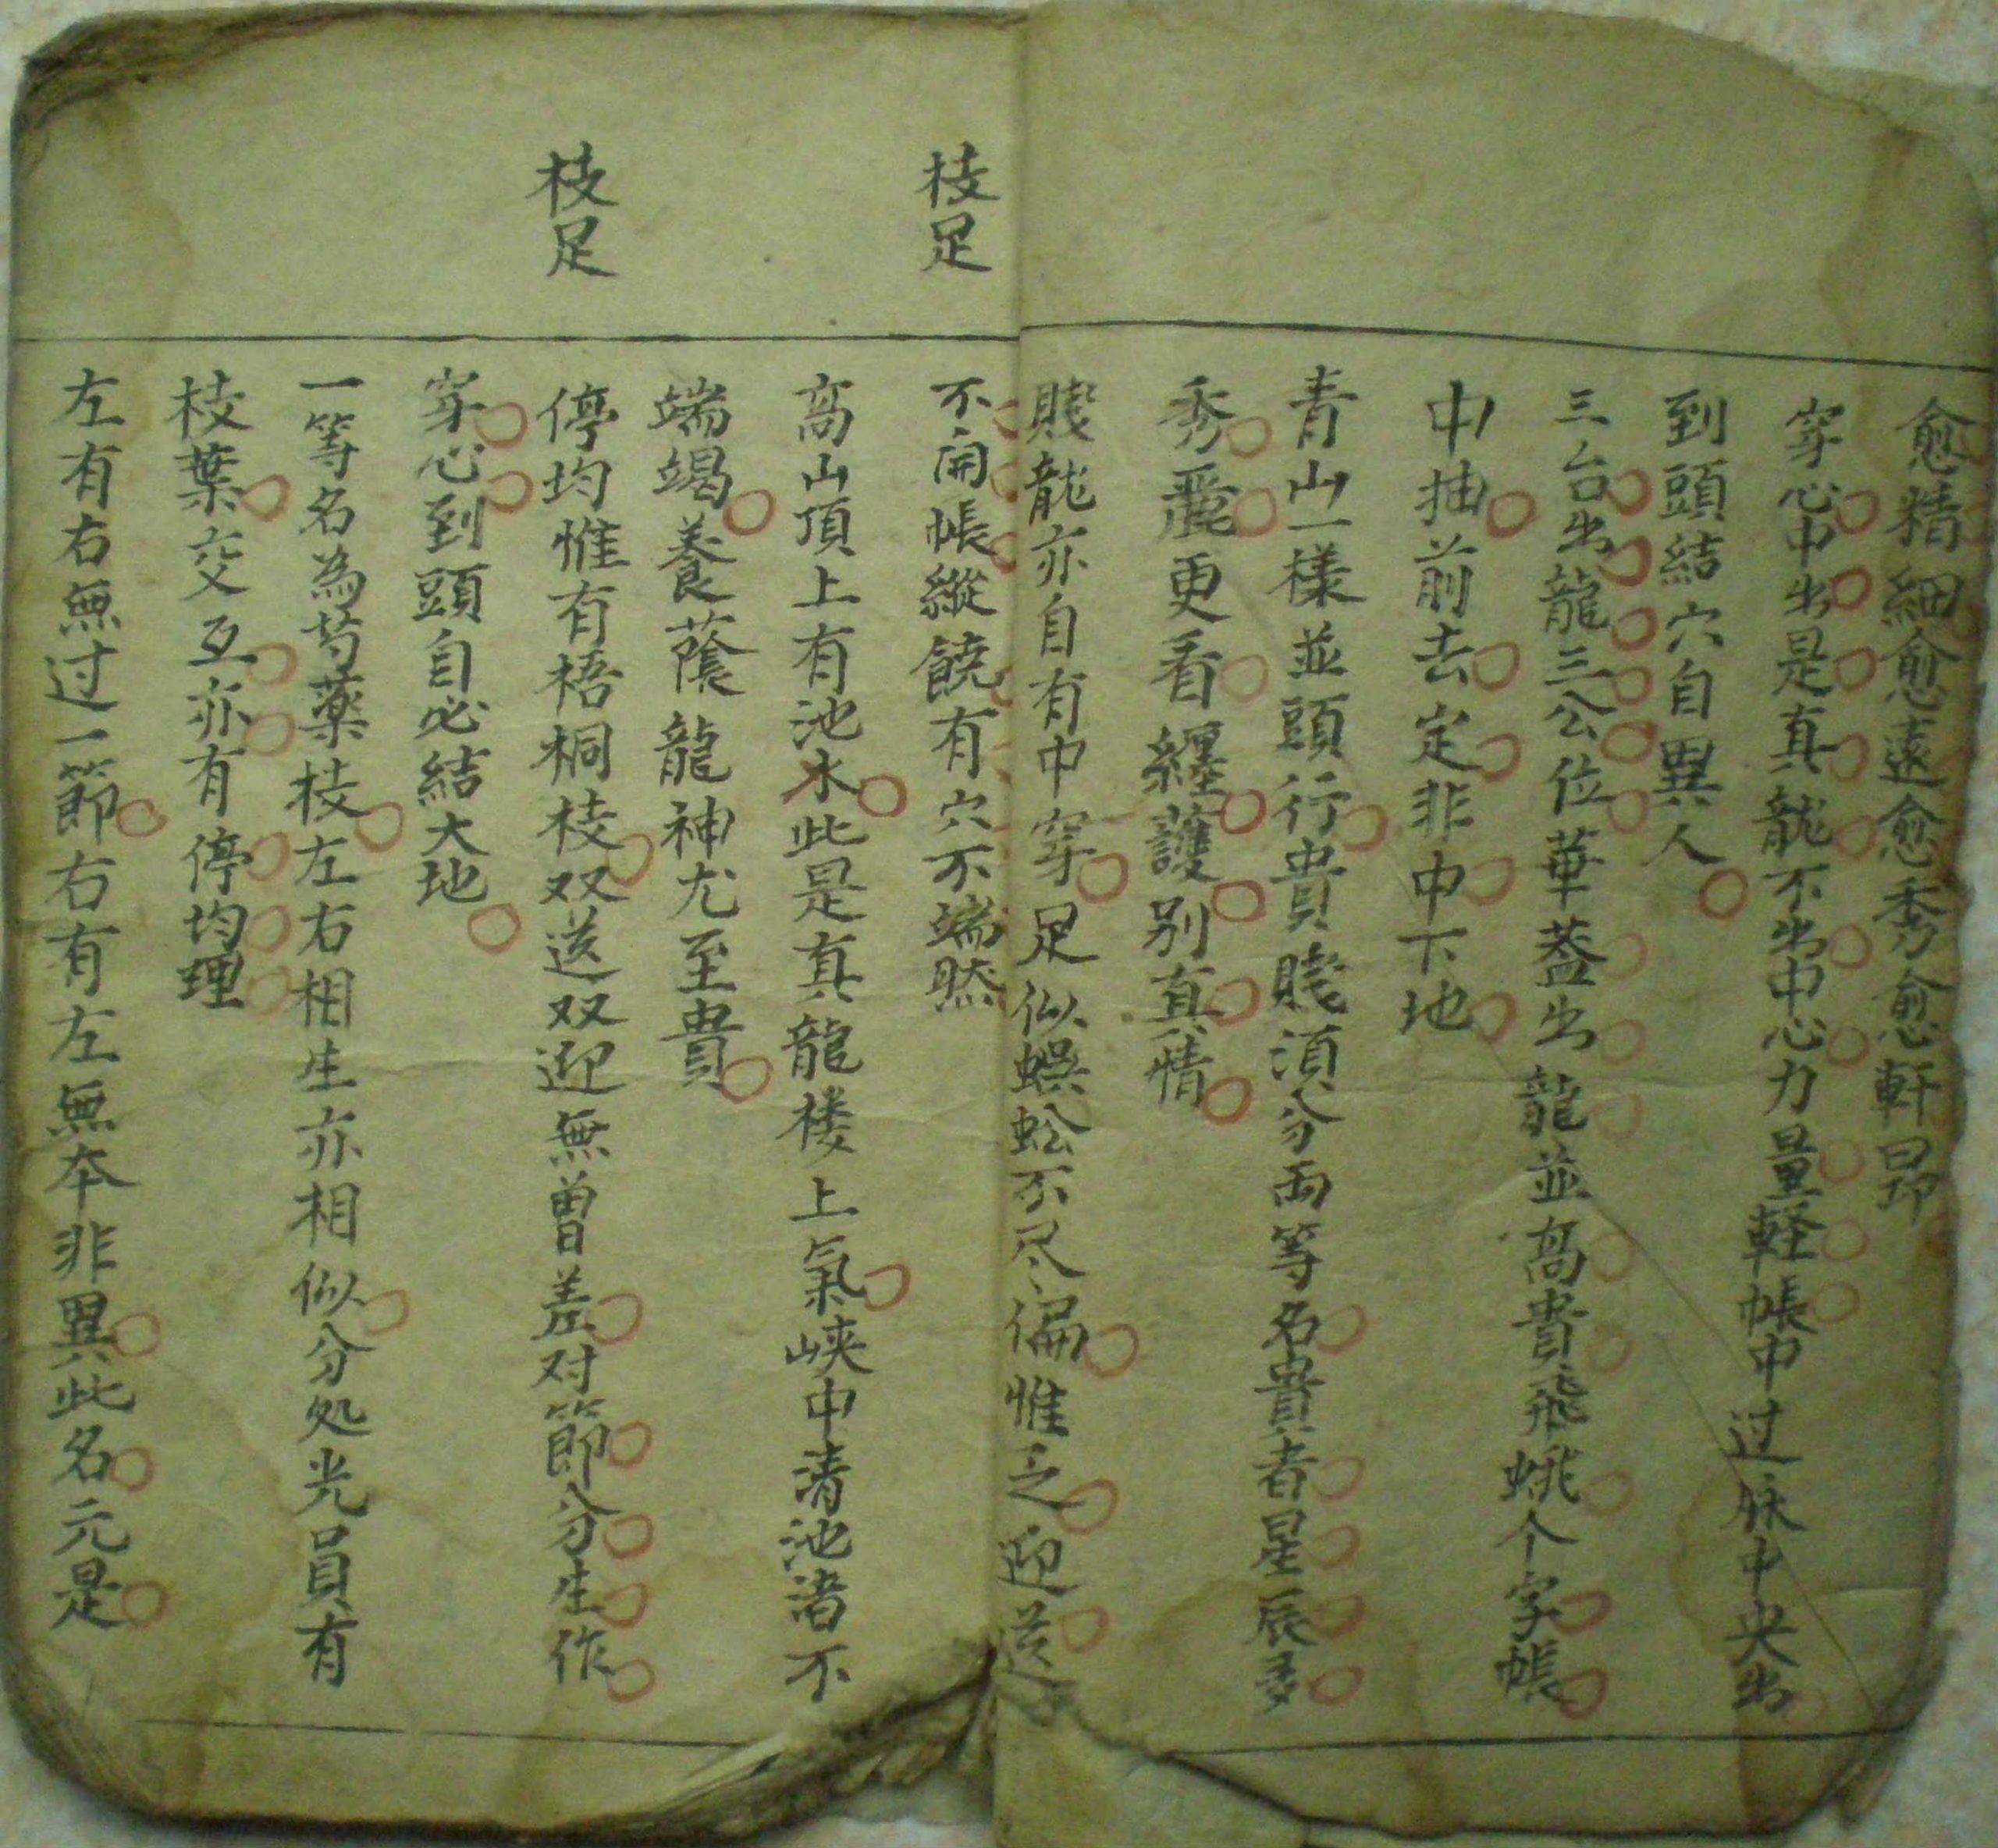 愈精細愈遠愈秀愈軒昂
穿心中出是真龍不出中心力量軽帳中过脉中央出
到頭結穴自異人
三台出龍三公位華蓋出龍並高貴飛蛾个字帳
中抽前去定非中下地
青山一樣並頭行貴賤須分両等名貴者星辰多
秀麗更看纏護别真情
賤龍亦自有中穿足似蜈蚣不尽偏惟乏迎送
枝足
不開帳縱饒有穴不端然
高山頂上有池水此是真龍楼上氣峡中清池渚不
端竭養蔭龍神尤至貴
枝足
停均惟有梧桐枝双送双迎無曽差对節分生作
穿心到頭自必結大地
一等名為芍藥枝左右相生亦相似分処光員有
枝葉交互亦有停均理
左有右無过一節右有左無本非異此名元是